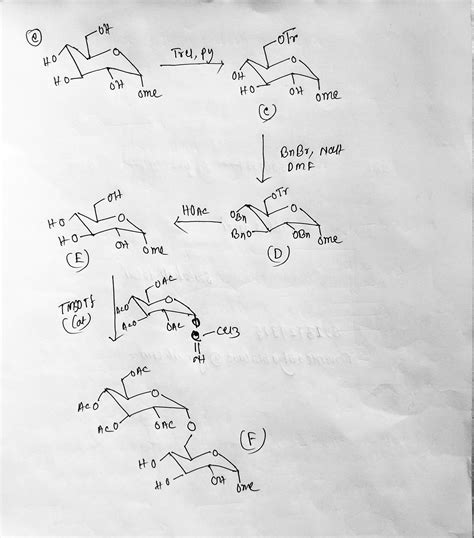 e
OH
HO
HO
OH
OMe
TrCl, Py
OTr
OH
HO
OH
OMe
C
BnBr, NaH
DMF
OTr
OBn
BnO
OBn
OMe
D
HOAc
OH
HO
HO
OH
OMe
E
TMSOTf
(cat)
OAC
ACO
ACO
OAC
O
CCl3
NH
OAC
ACO
ACO
OAC
O
HO
HO
OH
OMe
F